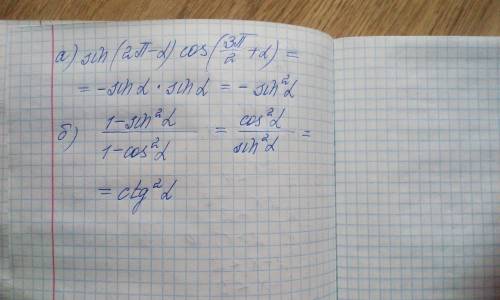 а) sin(2π-α) cos(3π/2+α) =
= -sinα · sinα = -sin²α
б) 1-sin²α/1-cos²α = cos²α/sin²α =
= ctg²α